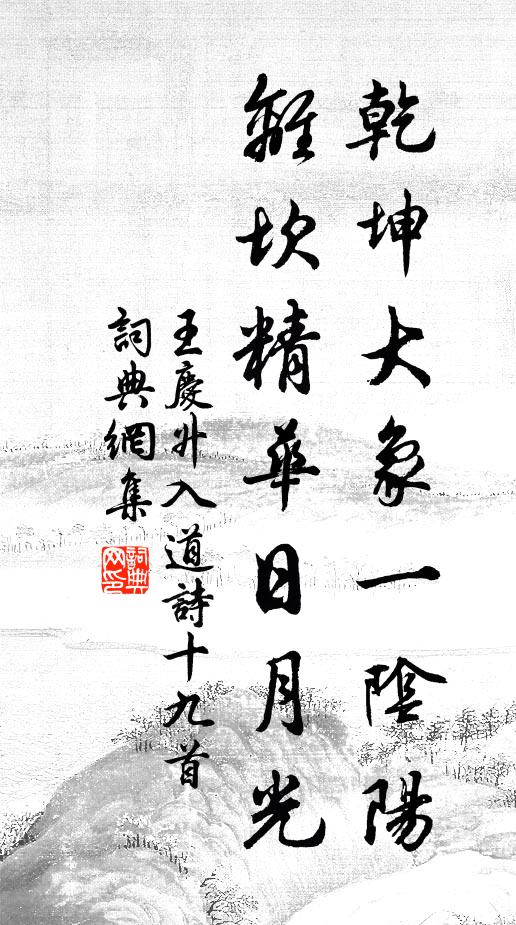 乾坤大象一陰陽
離坎精華日月光
王慶升入道詩十九首
詞典網集
詞典网印